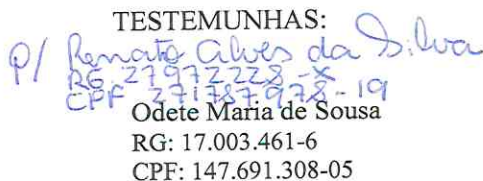 TESTEMUNHAS:
P/ Renato Alves da Silva
RG: 27972228-X
CPF 271787978-19
Odete Maria de Sousa
RG: 17.003.461-6
CPF: 147.691.308-05